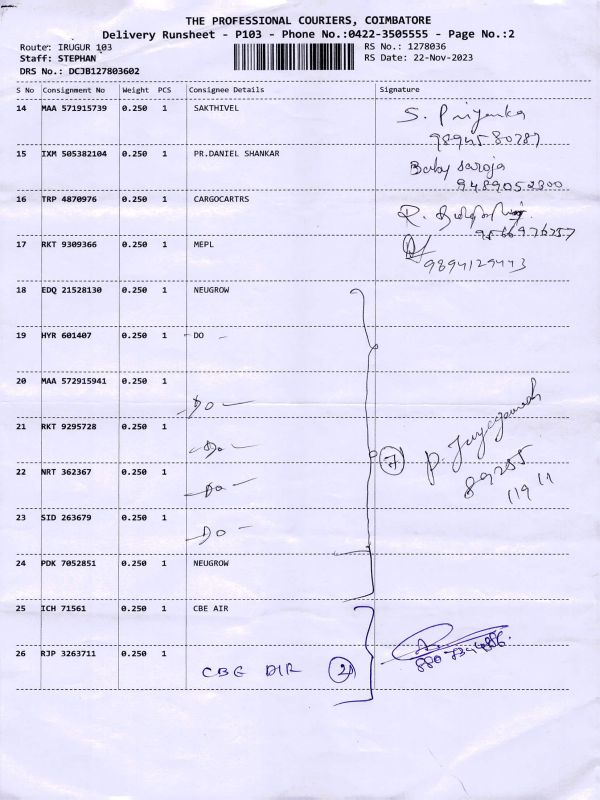 THE PROFESSIONAL COURIERS, COIMBATORE
Delivery Runsheet - P103 - Phone No.:0422-3505555 - Page No.:2
Route: IRUGUR 103 RS No.: 1278036
Staff: STEPHAN RS Date: 22-Nov-2023
DRS No.: DCJB127803602
S No Consignment No Weight PCS Consignee Details Signature
14 MAA 571915739 0.250 1 SAKTHIVEL S. Priyanka
9894580787
15 IXM 505382104 0.250 1 PR.DANIEL SHANKAR Baby saroja
9489052300
16 TRP 4870976 0.250 1 CARGOCARTRS R.
17 RKT 9309366 0.250 1 MEPL
9894129443
18 EDQ 21528130 0.250 1 NEUGROW
19 HYR 601407 0.250 1 - DO -
20 MAA 572915941 0.250 1
- Do -
21 RKT 9295728 0.250 1
- Do -
22 NRT 362367 0.250 1
- Do - 7 P.
23 SID 263679 0.250 1 89255
- DO - 11911
24 PDK 7052851 0.250 1 NEUGROW
25 ICH 71561 0.250 1 CBE AIR
26 RJP 3263711 0.250 1
CBE DIR 2